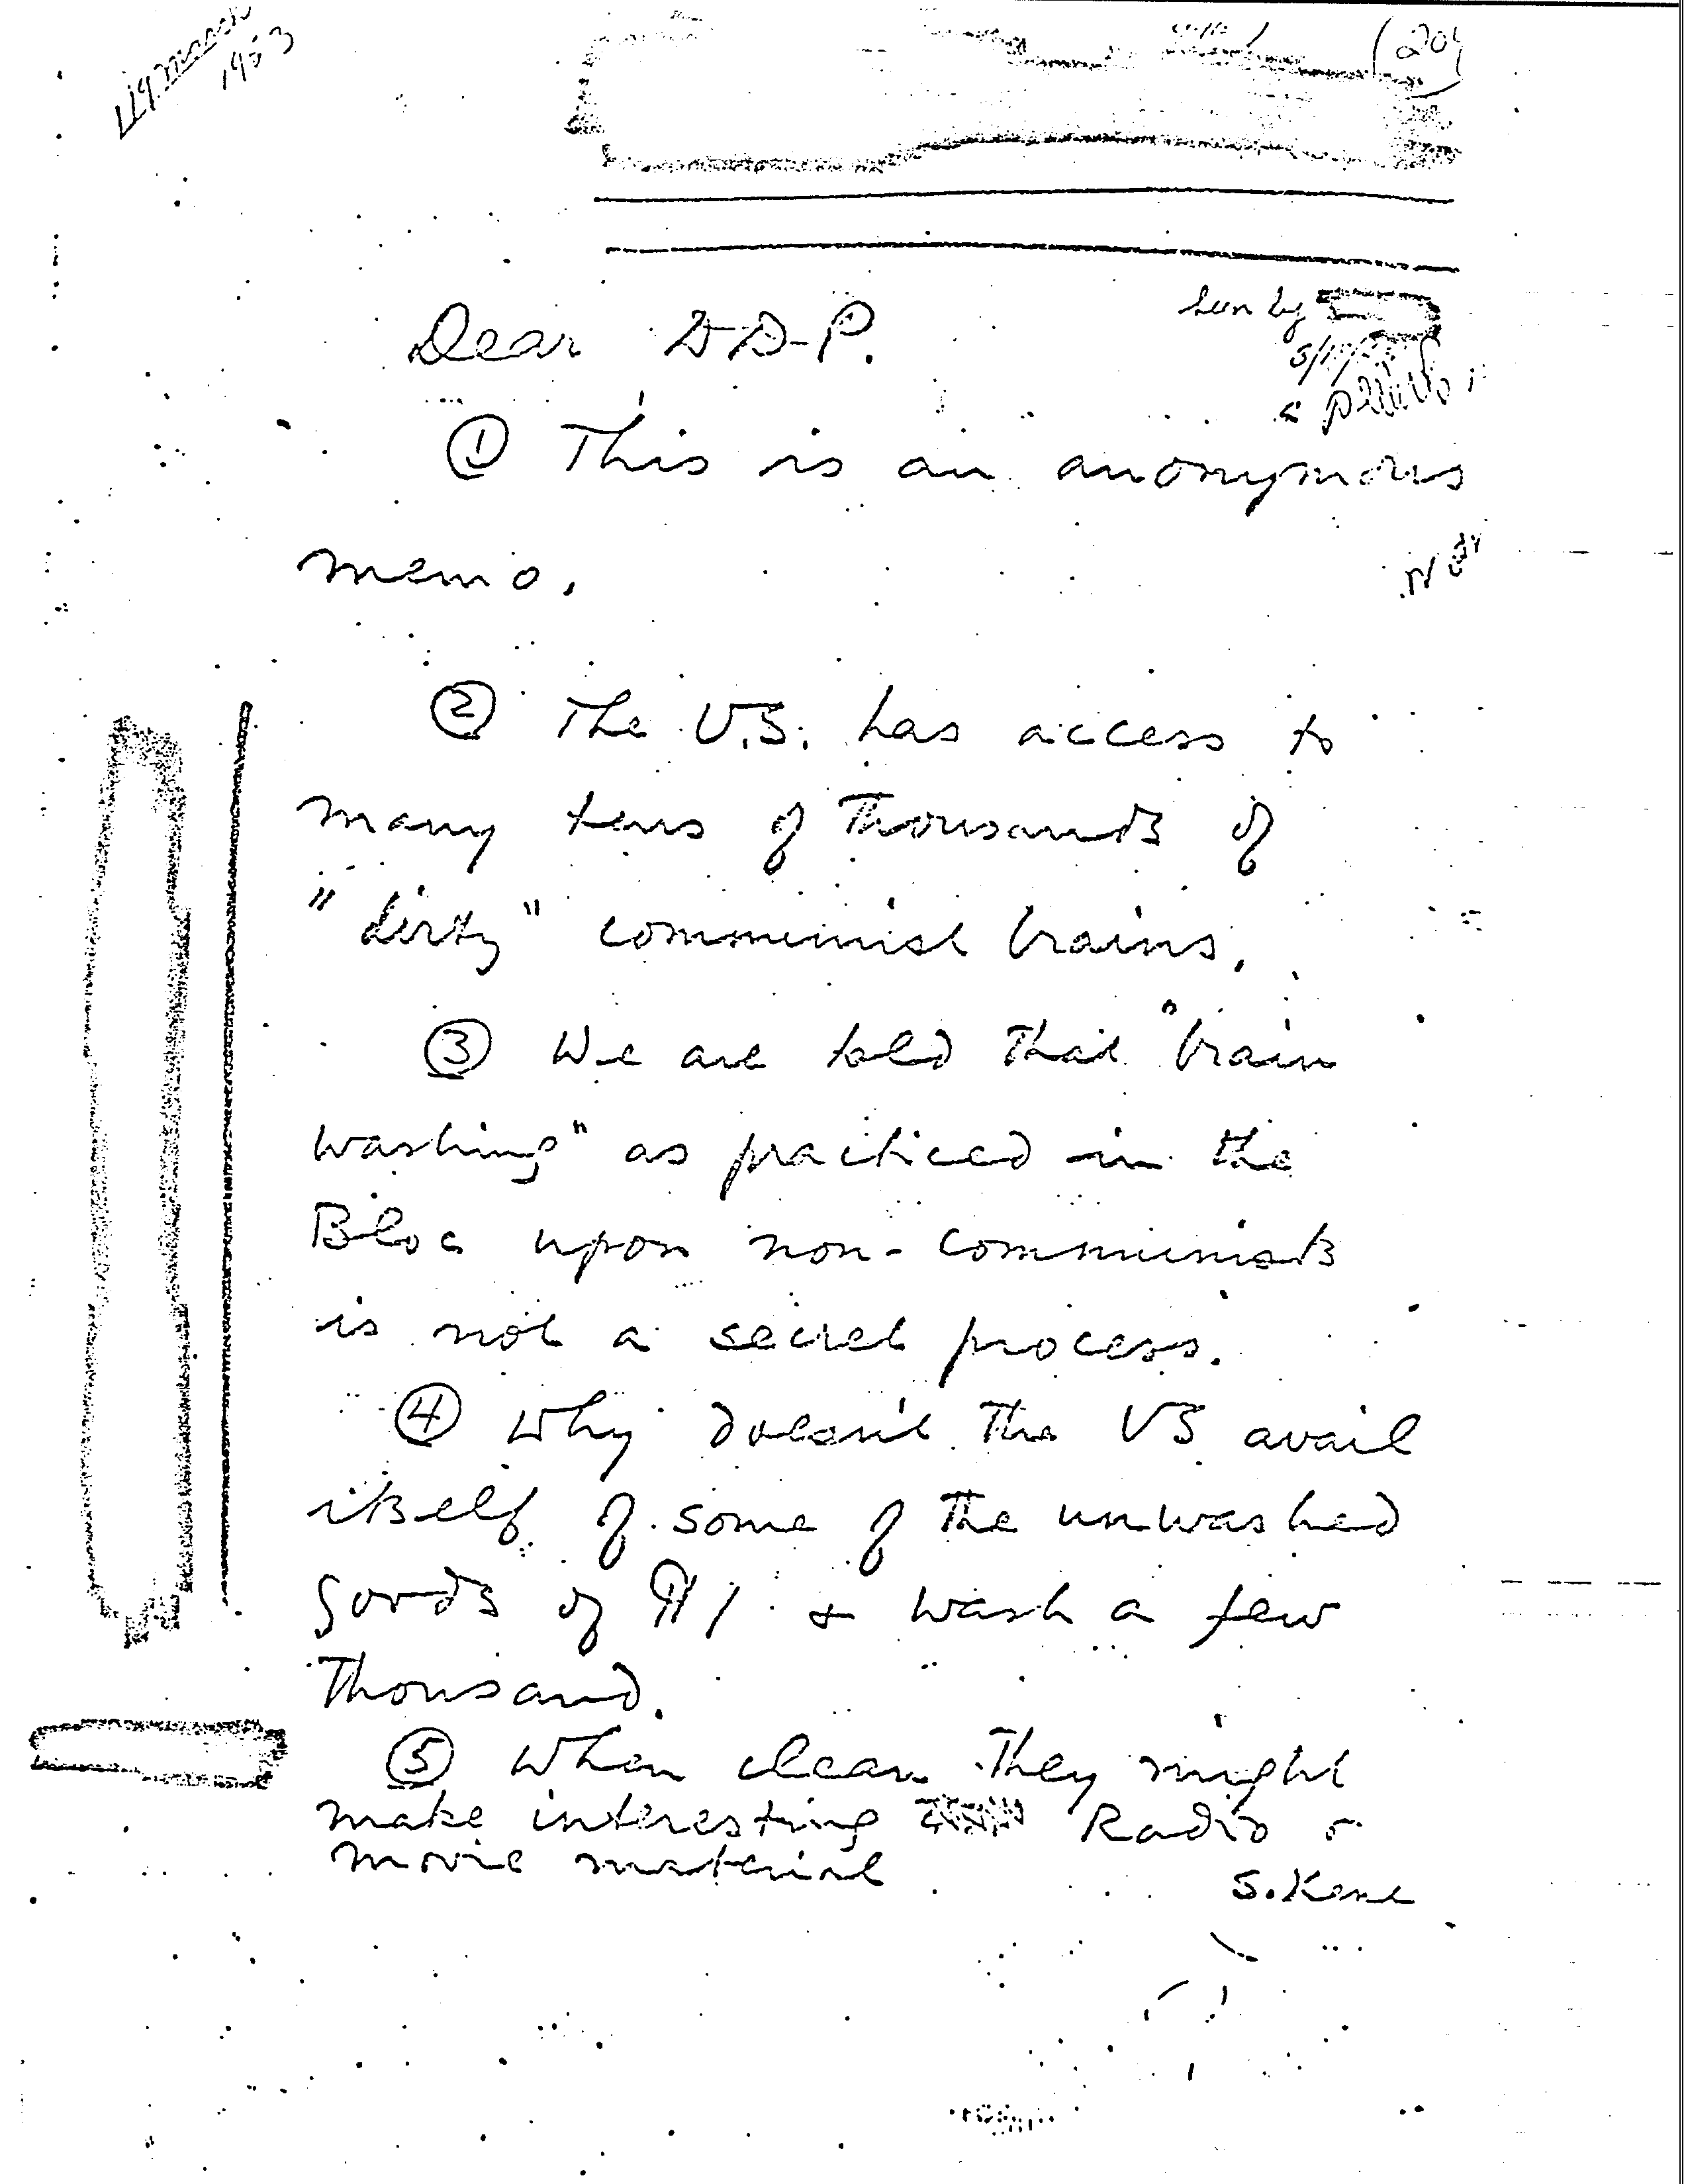 1953
(20)
Dear DD-P.
① This is an anonymous
memo.
② The U.S. has access to
many tens of thousands of
"dirty" communist brains.
③ We are told that "brain
washing" as practiced in the
Bloc upon non-communists
is not a secret process.
④ Why doesn't the US avail
itself of some of the unwashed
goods of ¶1 & wash a few
thousand.
⑤ When clean they might
make interesting Radio &
movie material
S. Kent